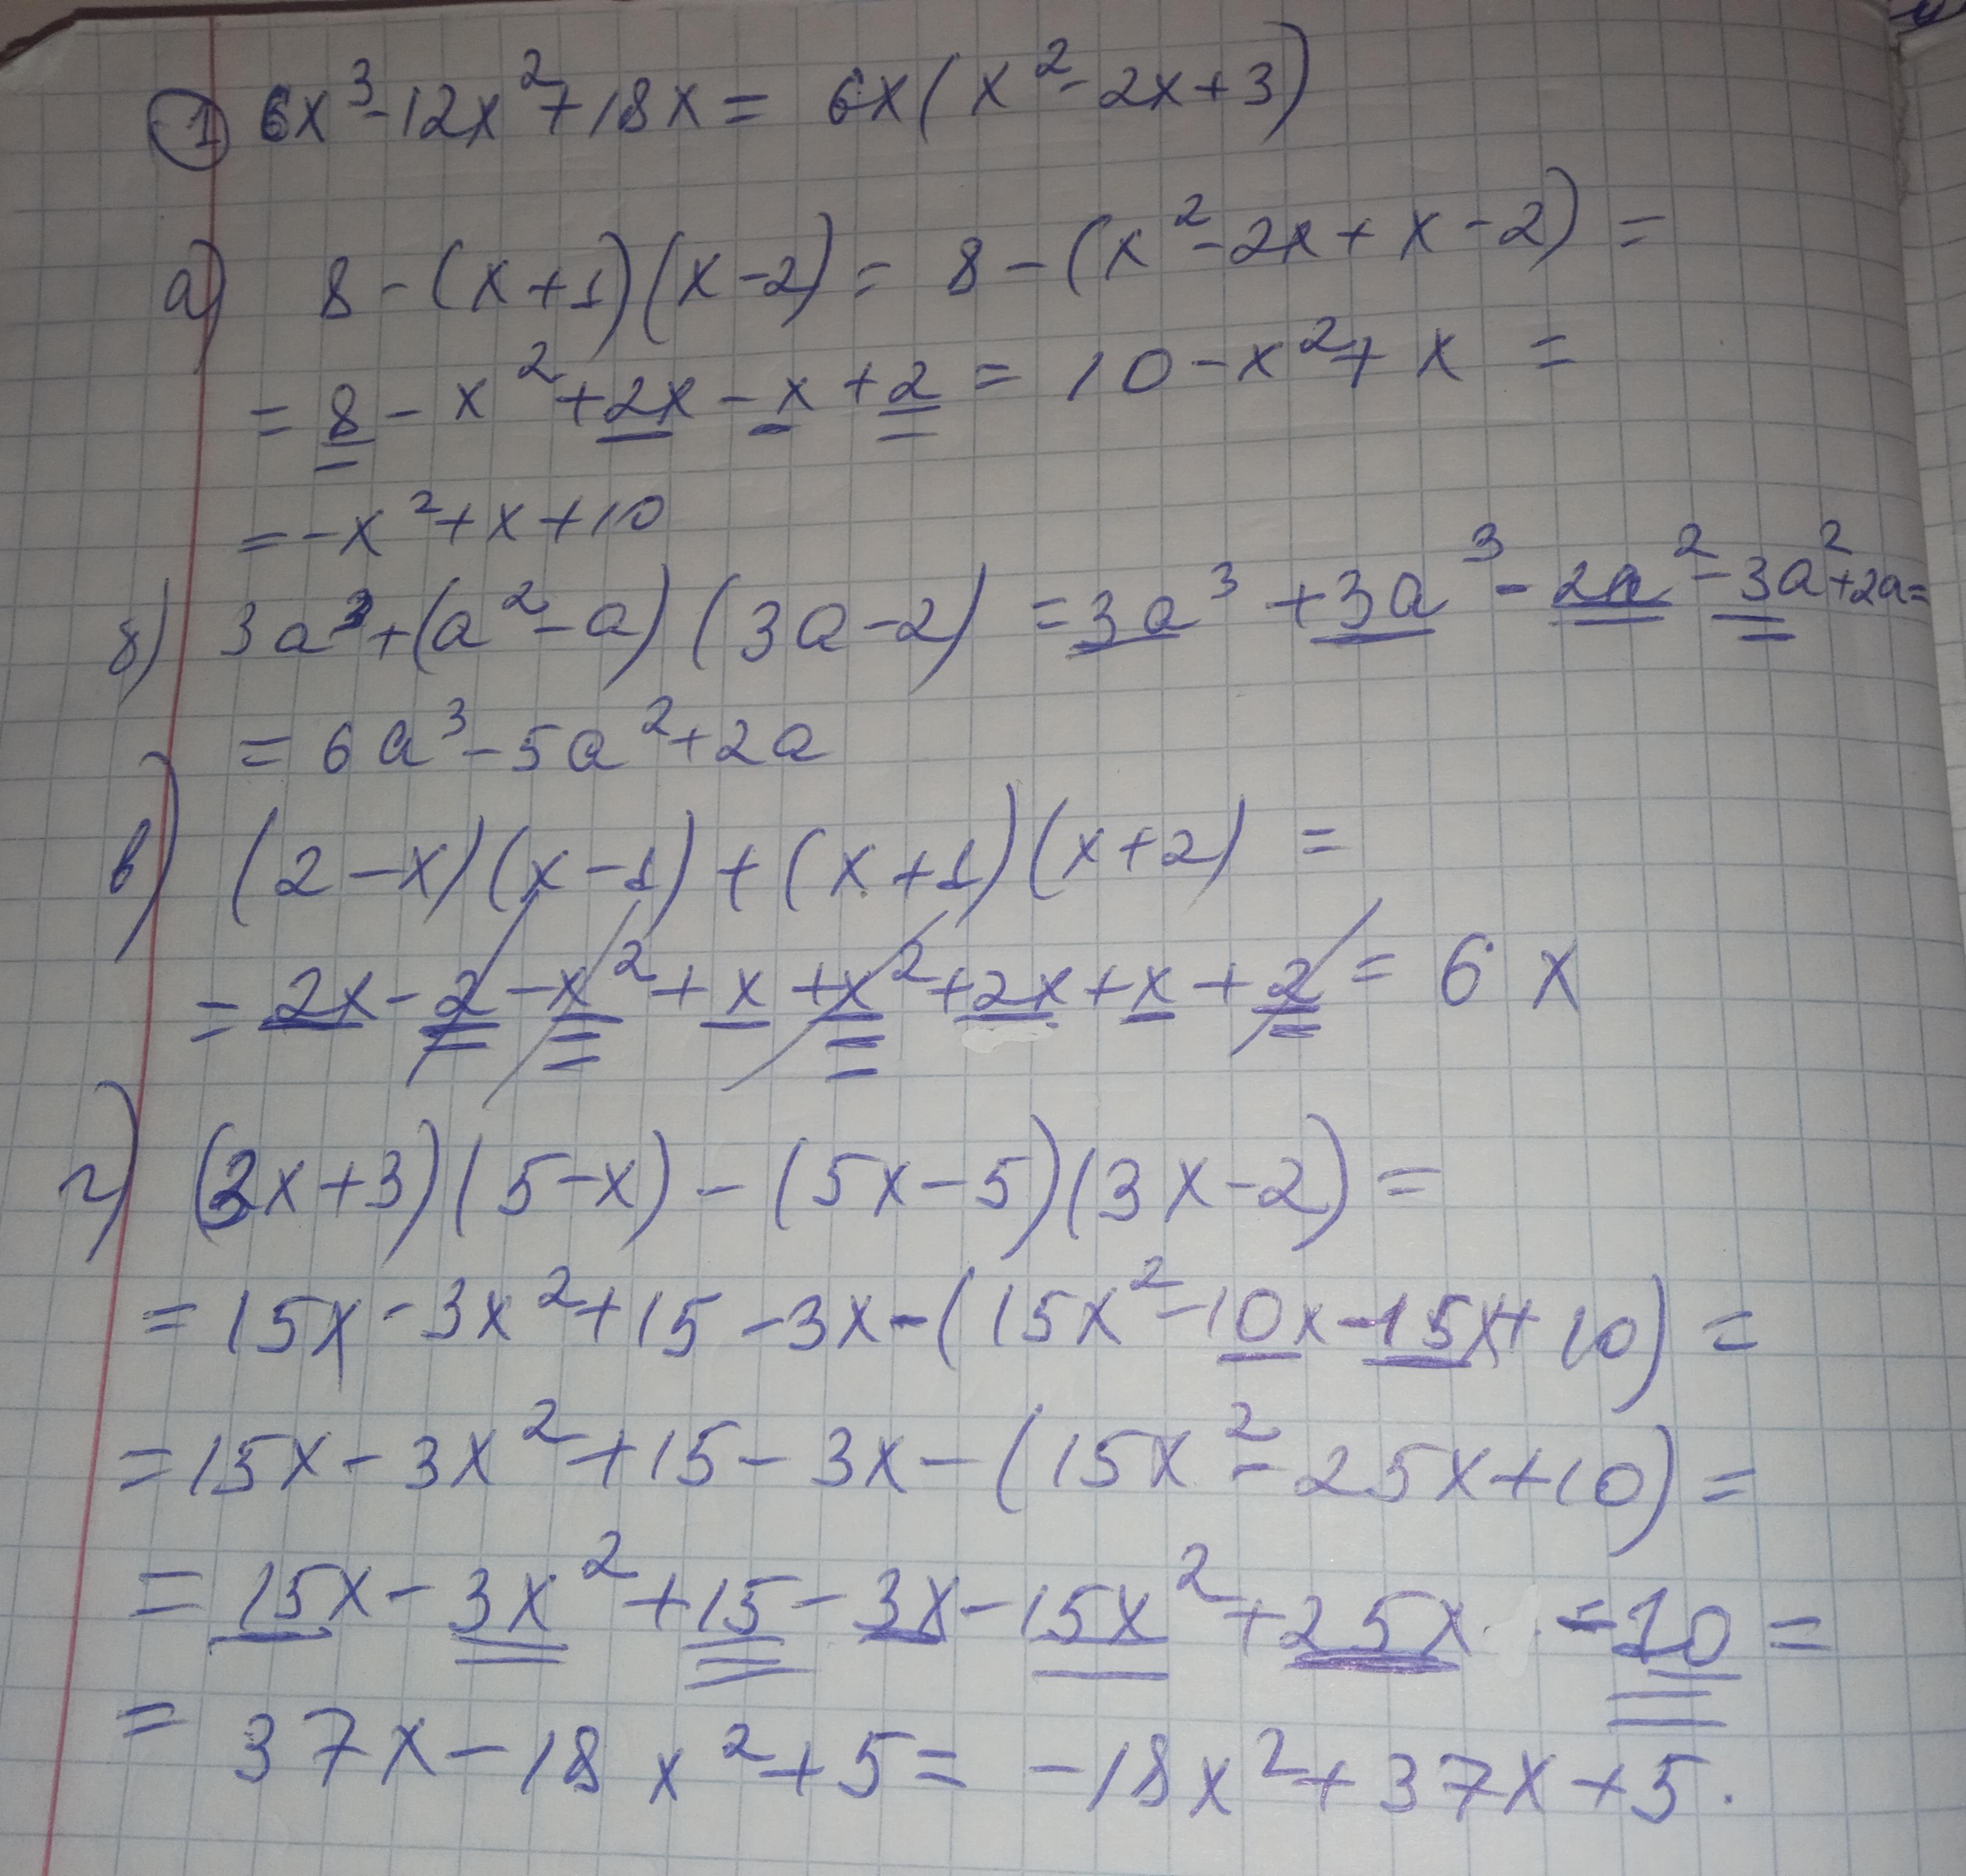 ① 6x³-12x²+18x = 6x(x²-2x+3)
а) 8-(x+1)(x-2) = 8-(x²-2x+x-2) =
= 8-x²+2x-x+2 = 10-x²+x =
= -x²+x+10
б) 3a³+(a²-a)(3a-2) = 3a³+3a³-2a²-3a²+2a=
= 6a³-5a²+2a
в) (2-x)(x-1)+(x+1)(x+2) =
= 2x-2-x²+x+x²+2x+x+2 = 6x
г) (3x+3)(5-x)-(5x-5)(3x-2) =
= 15x-3x²+15-3x-(15x²-10x-15x+10) =
= 15x-3x²+15-3x-(15x²-25x+10) =
= 15x-3x²+15-3x-15x²+25x-10 =
= 37x-18x²+5 = -18x²+37x+5.